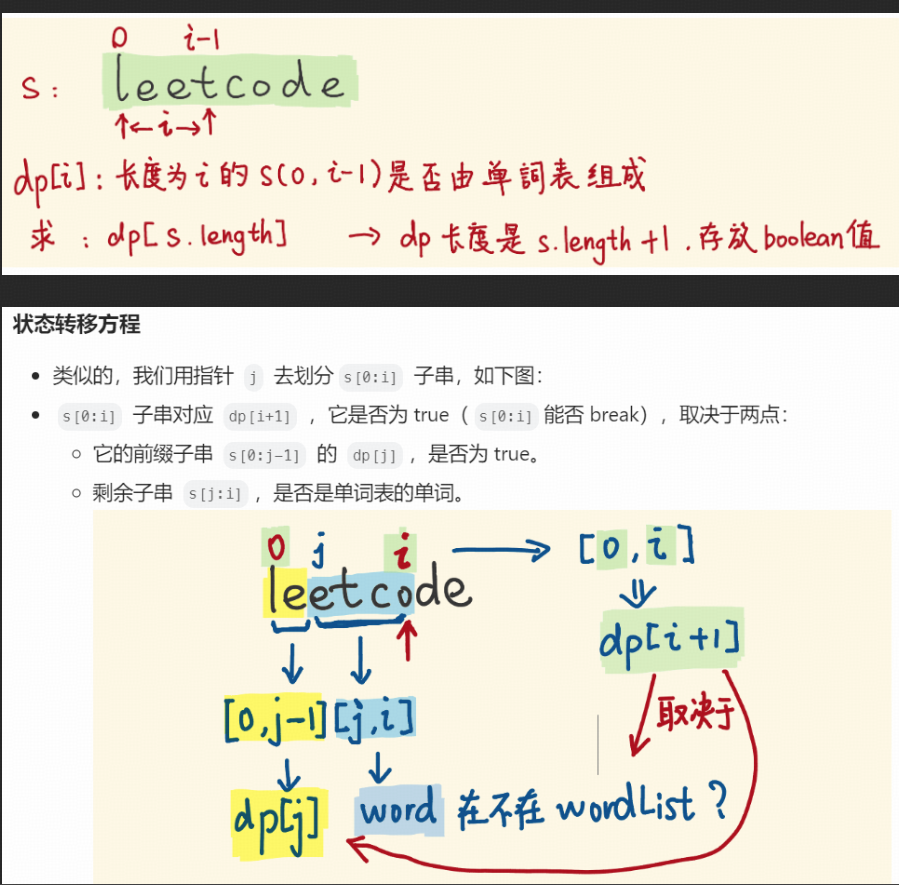 0 i-1
s: leetcode
←i→
dp[i]:长度为i的s(0,i-1)是否由单詞表组成
求:dp[s.length] → dp长度是s.length+1.存放boolean值
状态转移方程
类似的，我们用指针 j 去划分 s[0:i] 子串，如下图：
s[0:i] 子串对应 dp[i+1] ，它是否为 true（ s[0:i] 能否 break），取决于两点：
它的前缀子串 s[0:j-1] 的 dp[j] ，是否为 true。
剩余子串 s[j:i] ，是否是单词表的单词。
0 j i → [0,i]
leetcode
dp[i+1]
[0,j-1] [j,i] 取决于
dp[j] word 在不在wordList?